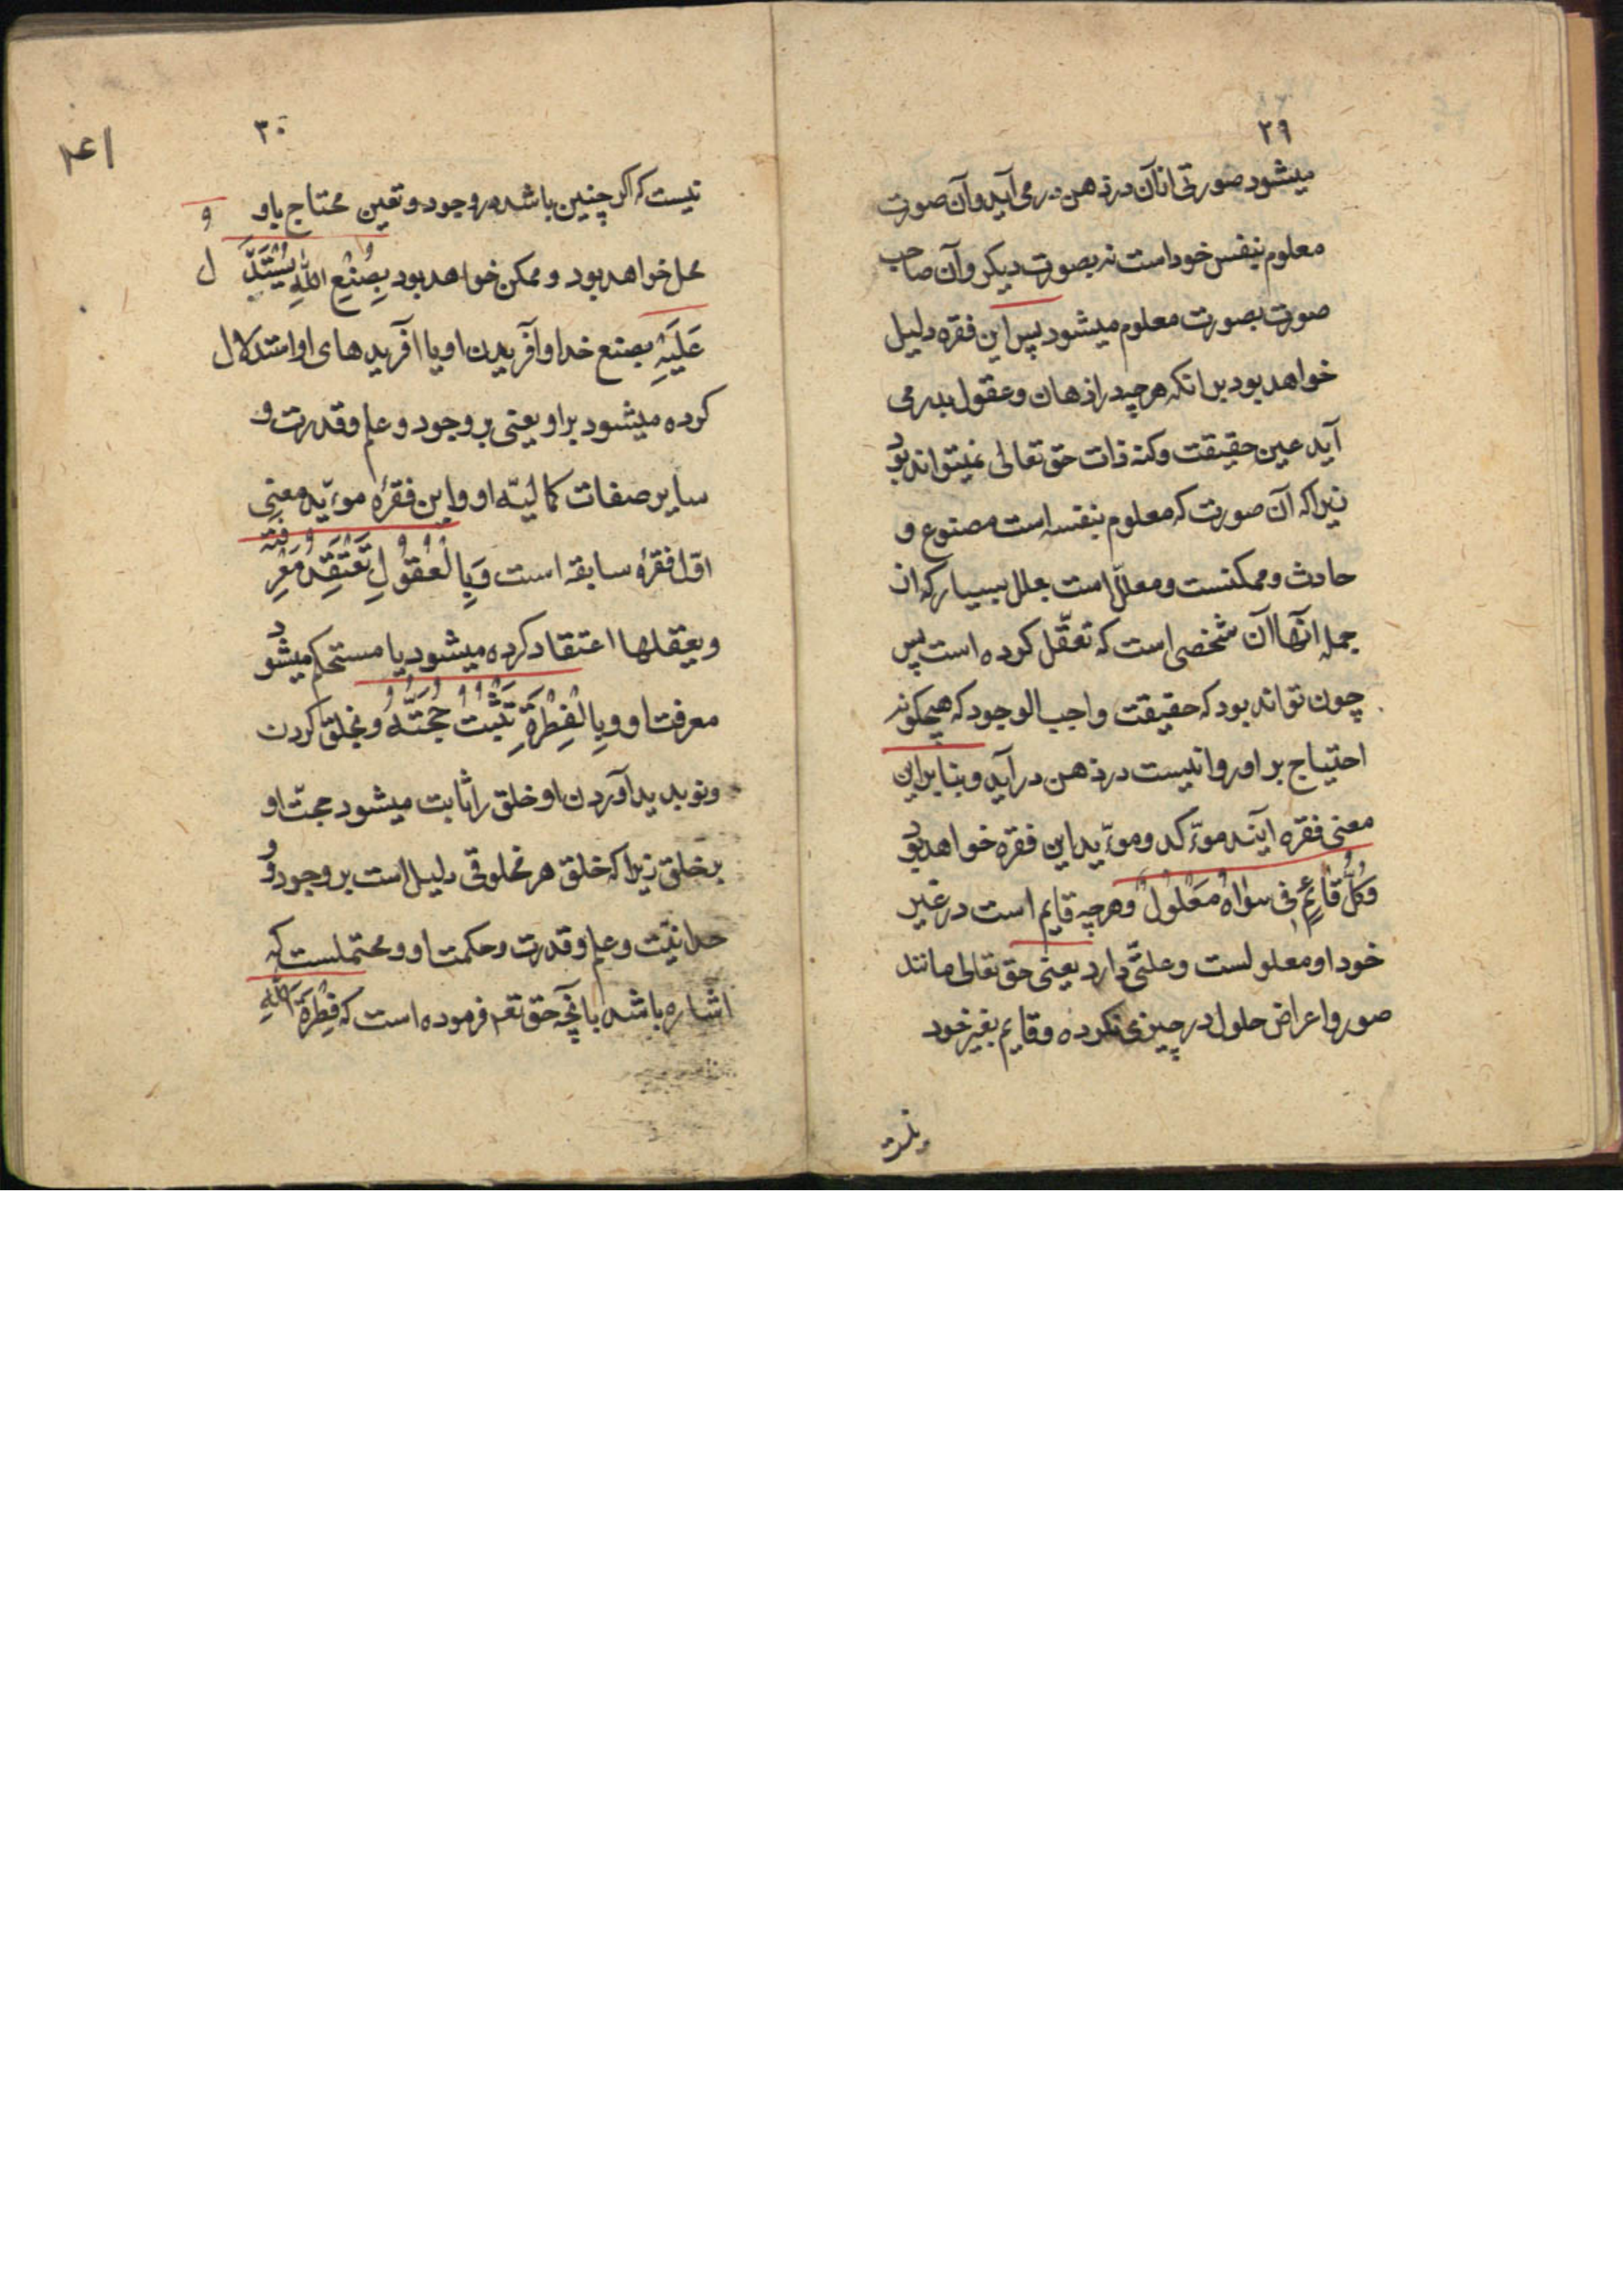 ۲۹
میشود صورتی از آن در ذهن در می آید و آن صورت
معلوم بنفس خود است نه بصورت دیکر و آن صاحب
صورت بصورت معلوم میشود پس این فقره دلیل
خواهد بود بر انکه هر چه در اذهان و عقول بدر می
آید عین حقیقت و کنه ذات حق تعالی نمیتواند بود
زیرا که آن صورت که معلوم بنفسه است مصنوع و
حادث و ممکنست و معلّل است بعلل بسیار که از
جمله انّها آن شخصی است که تعقّل کرده است پس
چون تواند بود که حقیقت واجب الوجود که هیچکونه
احتیاج بر او روا نیست در ذهن در آید و بنا براین
معنی فقره آینده موءکد و موءیّد این فقره خواهد بود
وَکُلُّ قٰائِمٍ فِی سِوٰاهُ مَعْلُولٌ و هر چه قایم است در غیر
خود او معلولست و علتّی دارد یعنی حق تعالی مانند
صور و اعراض حلول در چیزی نکرده و قایم بغیر خود
نیست
۳۰
نیست که اکر چنین باشد در وجود و تعین محتاج باو و
محل خواهد بود و ممکن خواهد بود بِصُنْعِ اللّٰهِ یُسْتَدَلُّ
عَلَیْهِ بصنع خدا و آفریدن او یا آفریدهای او استدلال
کرده میشود بر او یعنی بر وجود و علم و قدرت و
سایر صفات کمالیّه او و این فقرهٔ موءیّد معنی
اوّل فقرهٔ سابقه است وَ بِالْعُقُولِ تُعْتَقَدُ مَعْرِفَتُهُ
و بعقلها اعتقاد کرده میشود یا مستحکم میشود
معرفت او وَ بِالْفِطْرَةِ تَثْبُتُ حُجَّتُهُ و بخلق کردن
و نو پدید آوردن او خلق را ثابت میشود حجتّ او
بر خلق زیرا که خلق هر مخلوقی دلیل است بر وجود و و
حدانیّت و علم و قدرت و حکمت او و محتملست که
اشاره باشد بآنچه حق تعم فرموده است که فِطْرَةَ اللّٰهِ